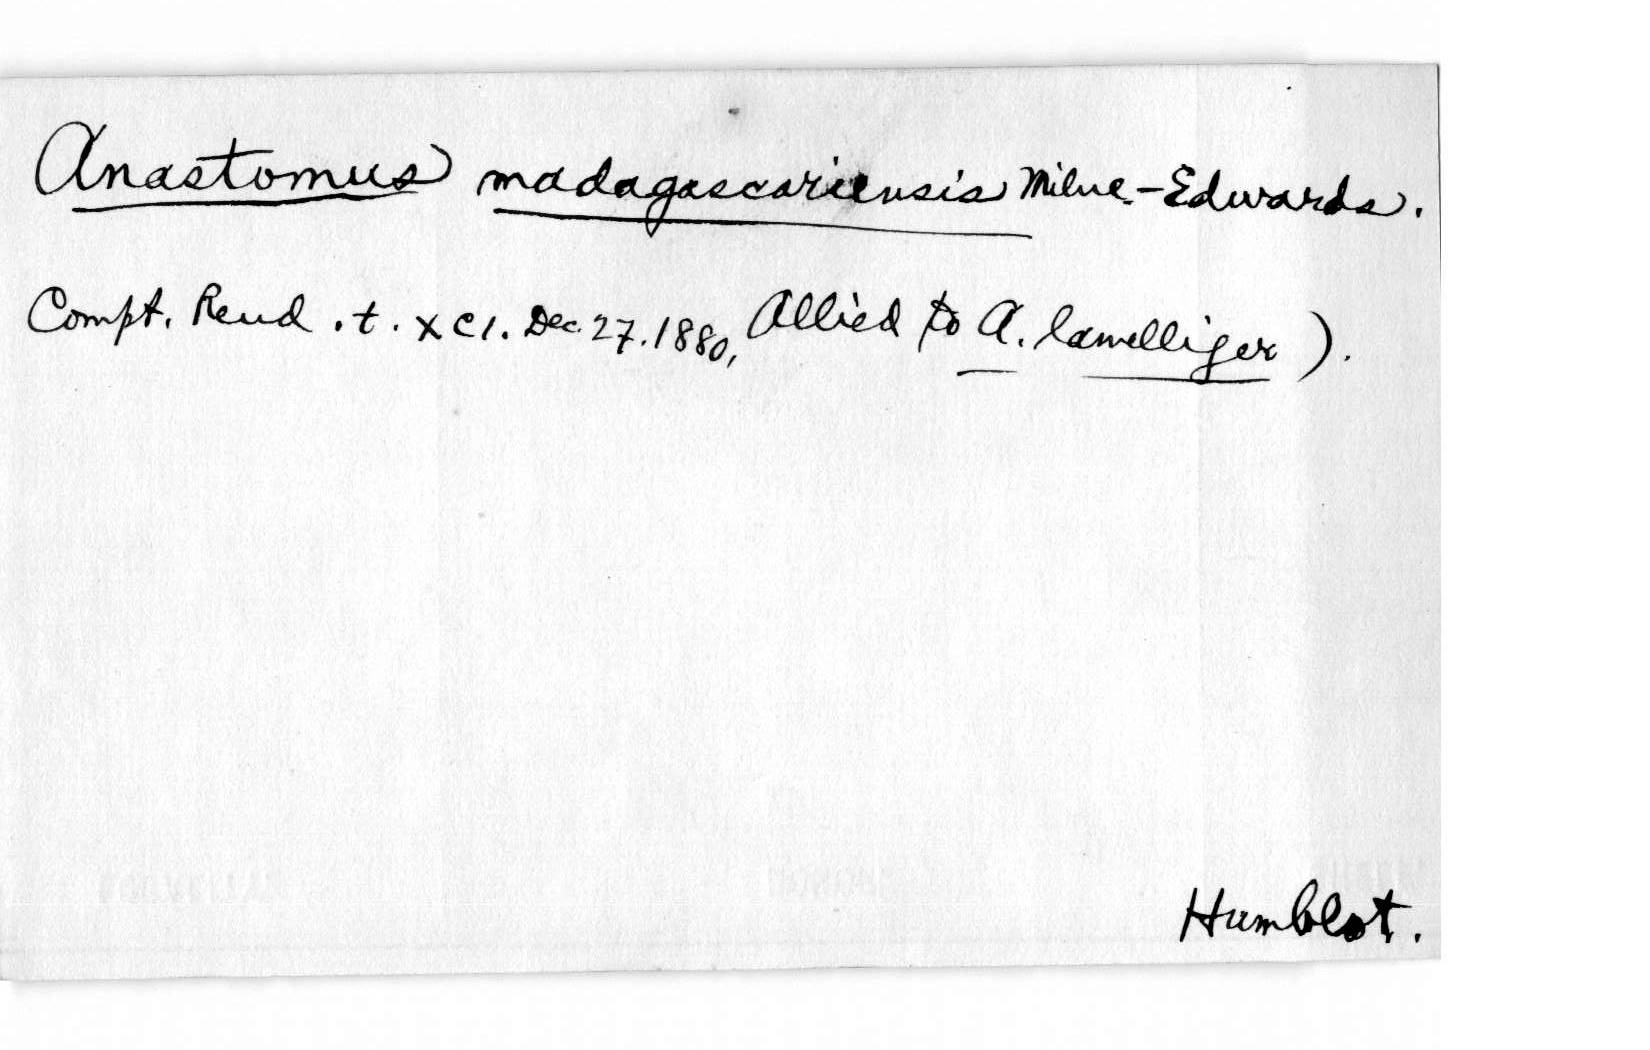 Anastomus madagascariensis Milne-Edwards.
Compt. Rend. t. XCI. Dec. 27. 1880, Allied to A. lamelliger).
Humblot.